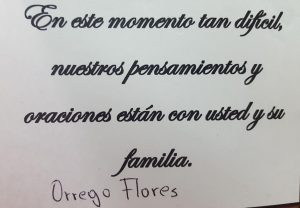 En este momento tan difícil,
nuestros pensamientos y
oraciones están con usted y su
familia.
Orrego Flores